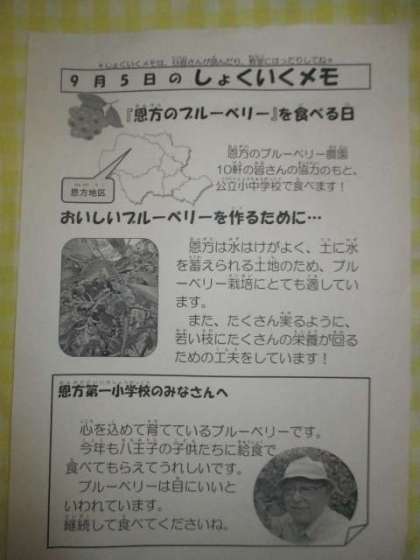 ＊しょくいくメモは、日直さんが読んだら、教室にはったりしてね＊
9月5日のしょくいくメモ
『恩方のブルーベリー』を食べる日
恩方のブルーベリー農園
10軒の皆さんの協力のもと、
公立小中学校で食べます！
恩方地区
おいしいブルーベリーを作るために…
恩方は水はけがよく、土に水
を蓄えられる土地のため、ブル
ーベリー栽培にとても適してい
ます。
また、たくさん実るように、
若い枝にたくさんの栄養が回る
ための工夫をしています！
恩方第一小学校のみなさんへ
心を込めて育てているブルーベリーです。
今年も八王子の子供たちに給食で
食べてもらえてうれしいです。
ブルーベリーは目にいいと
いわれています。
継続して食べてくださいね。